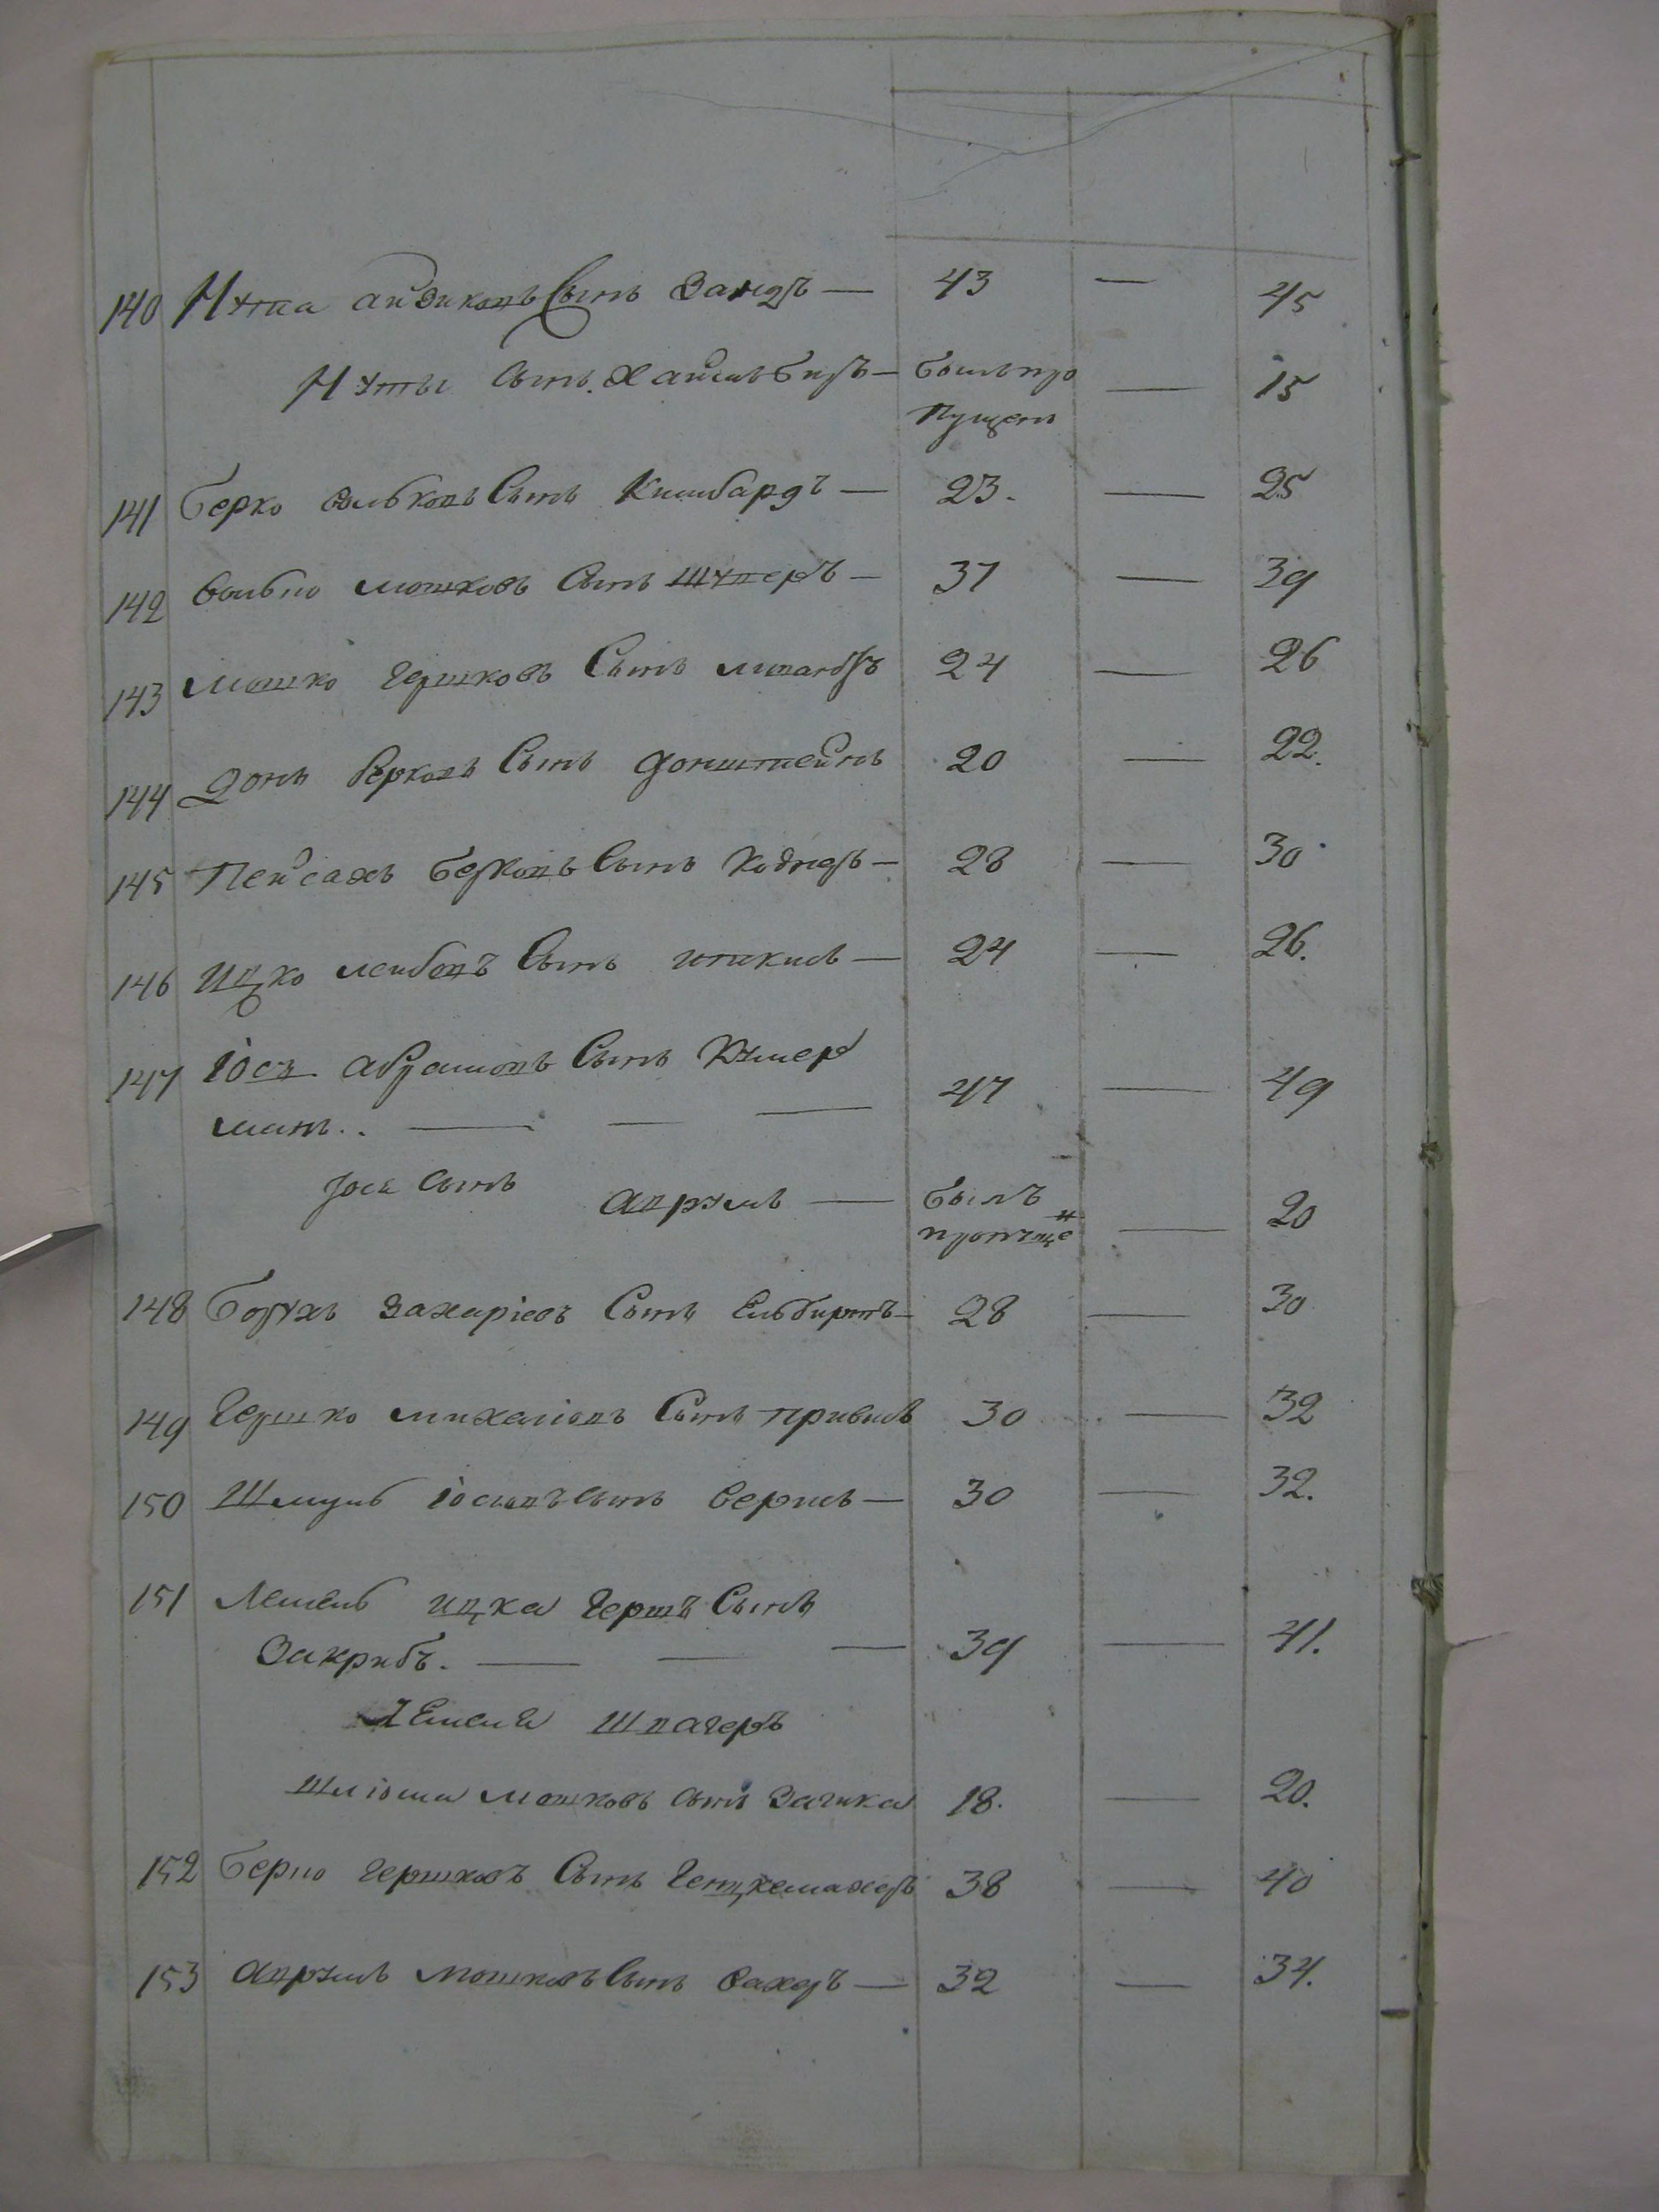 140 Нута айзиковъ Сынъ Зандъ — 43 — 45
Нуты Сынъ Хаимъ берь — былъ про — 15
пущен
141 Берко вольковъ Сынъ Кимбардъ — 23. — 25
142 Волько мошковъ Сынъ Шуперъ — 37 — 39
143 Мошко гершковъ Сынъ 24 — 26
144 Донъ берковъ Сынъ донштейнъ 20 — 22.
145 Пейсахъ берковъ Сынъ — 28 — 30
146 Ицко лейбовъ Сынъ — 24 — 26.
147 Іось абрамовъ Сынъ Кумер 47 — 49
манъ .. — — —
Іося Сынъ Аврумъ — былъ — 20
пропуще н
148 Борухъ захаріевъ Сынъ Ельбиртъ — 28 — 30
149 Гершко михеліовъ Сынъ привисъ 30 — 32
150 Шмуль іосіовъ сынъ — 30 — 32.
151 Лемель ицка гершъ Сынъ
Закрибъ. — — — 39 — 41.
Лемеля Швагеръ
Шліома мошковъ сынъ Загика 18. — 20.
152 Берко гершковъ Сынъ Генцкемахеръ 38 — 40
153 Аврумъ мошковъ Сынъ Сахеръ — 32 — 34.